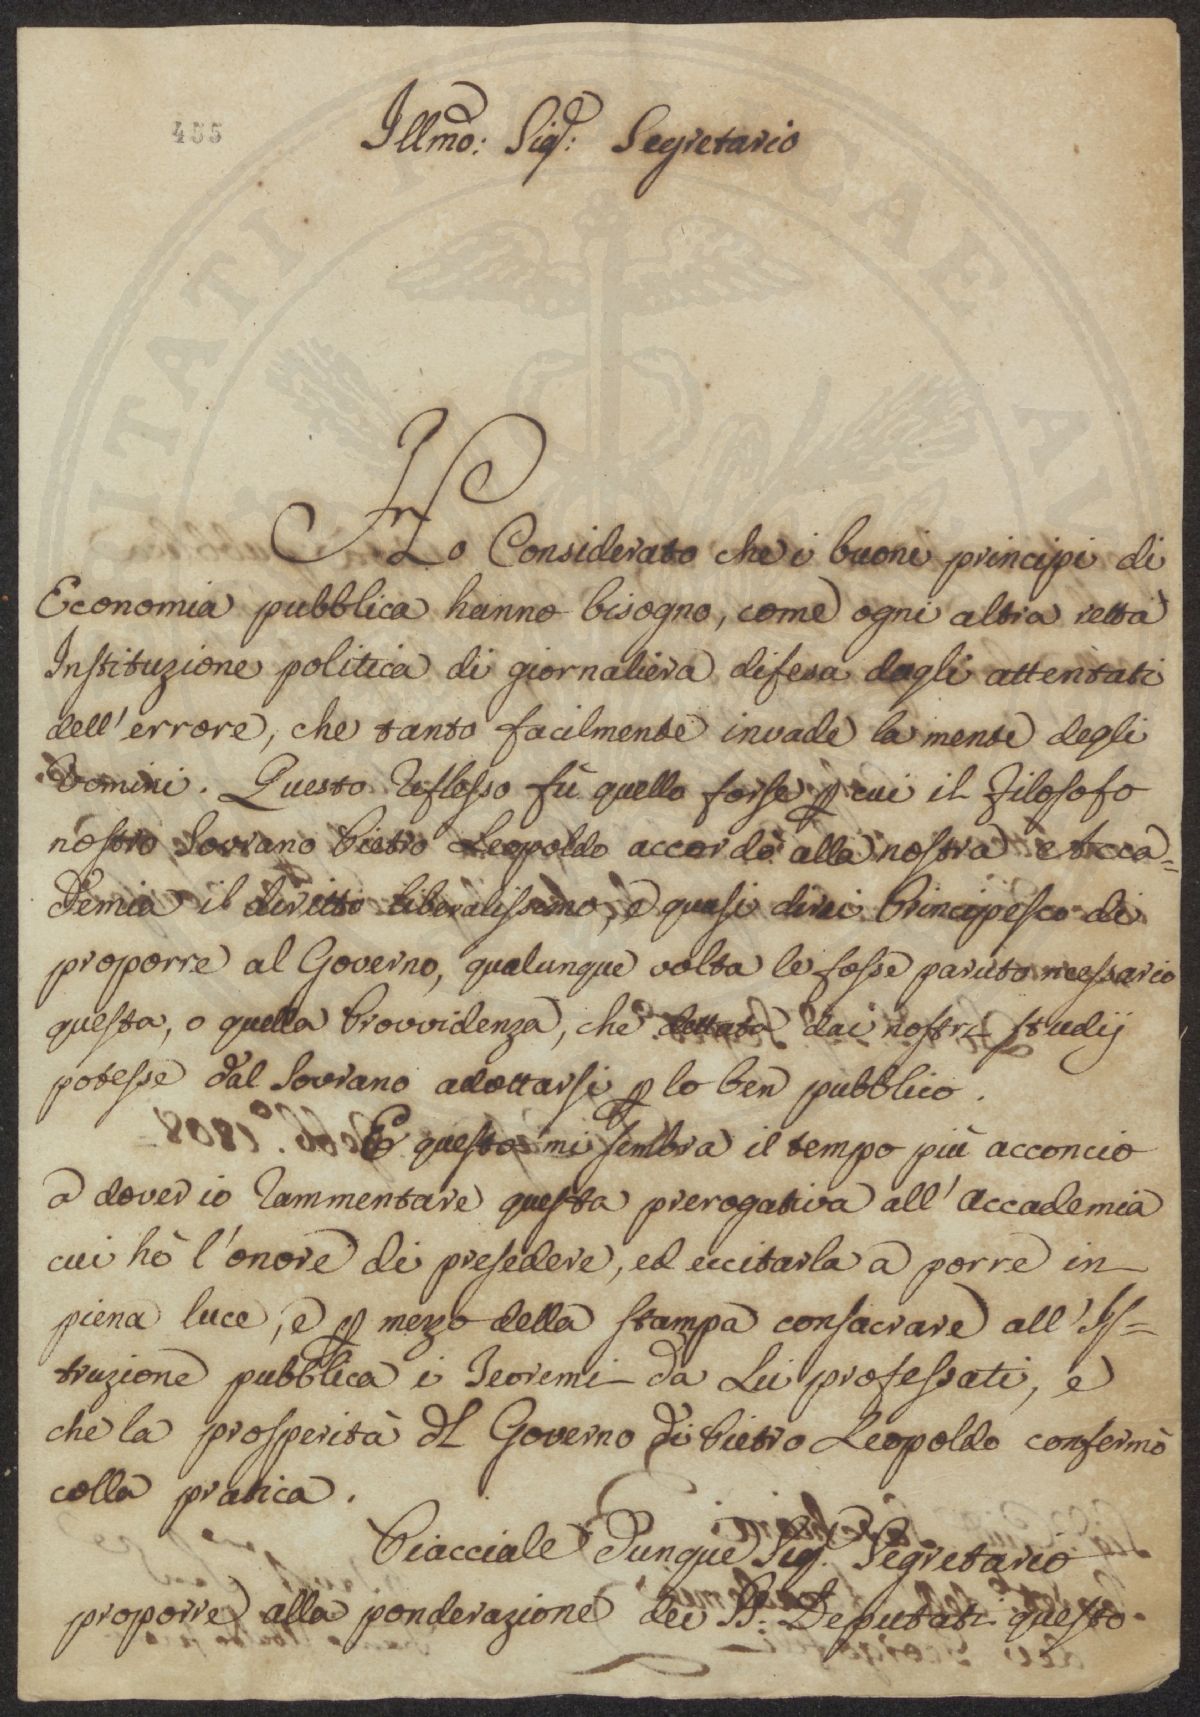 455
Illmo: Sigr: Segretario
Ho Considerato che i buoni principi di
Economia pubblica hanno bisogno, come ogni altra retta
Instituzione politica di giornaliera difesa dagli attentati
dell'errore, che tanto facilmente invade la mente degli
Uomini. Questo Reflesso fù quello forse p cui il Filosofo
nostro Sovrano Pietro Leopoldo accordò alla nostra Acca=
demia il diritto liberalissimo, e quasi direi Principesco di
proporre al Governo, qualunque volta le fosse paruto necessario
questa, o quella Provvidenza, che dettata dai nostri studij
potesse dal Sovrano adottarsi p lo ben pubblico.
E questo mi sembra il tempo più acconcio
a dover io rammentare questa prerogativa all'Accademia
cui hò l'onore di presedere, ed eccitarla a porre in
piena luce, e p mezzo della stampa consacrare all'Is=
truzione pubblica i Teoremi da Lei professati, e
che la prosperità del Governo di Pietro Leopoldo confermò
colla pratica.
Piacciale dunque Sigr. Segretario
proporre alla ponderazione dei SS. Deputati questo